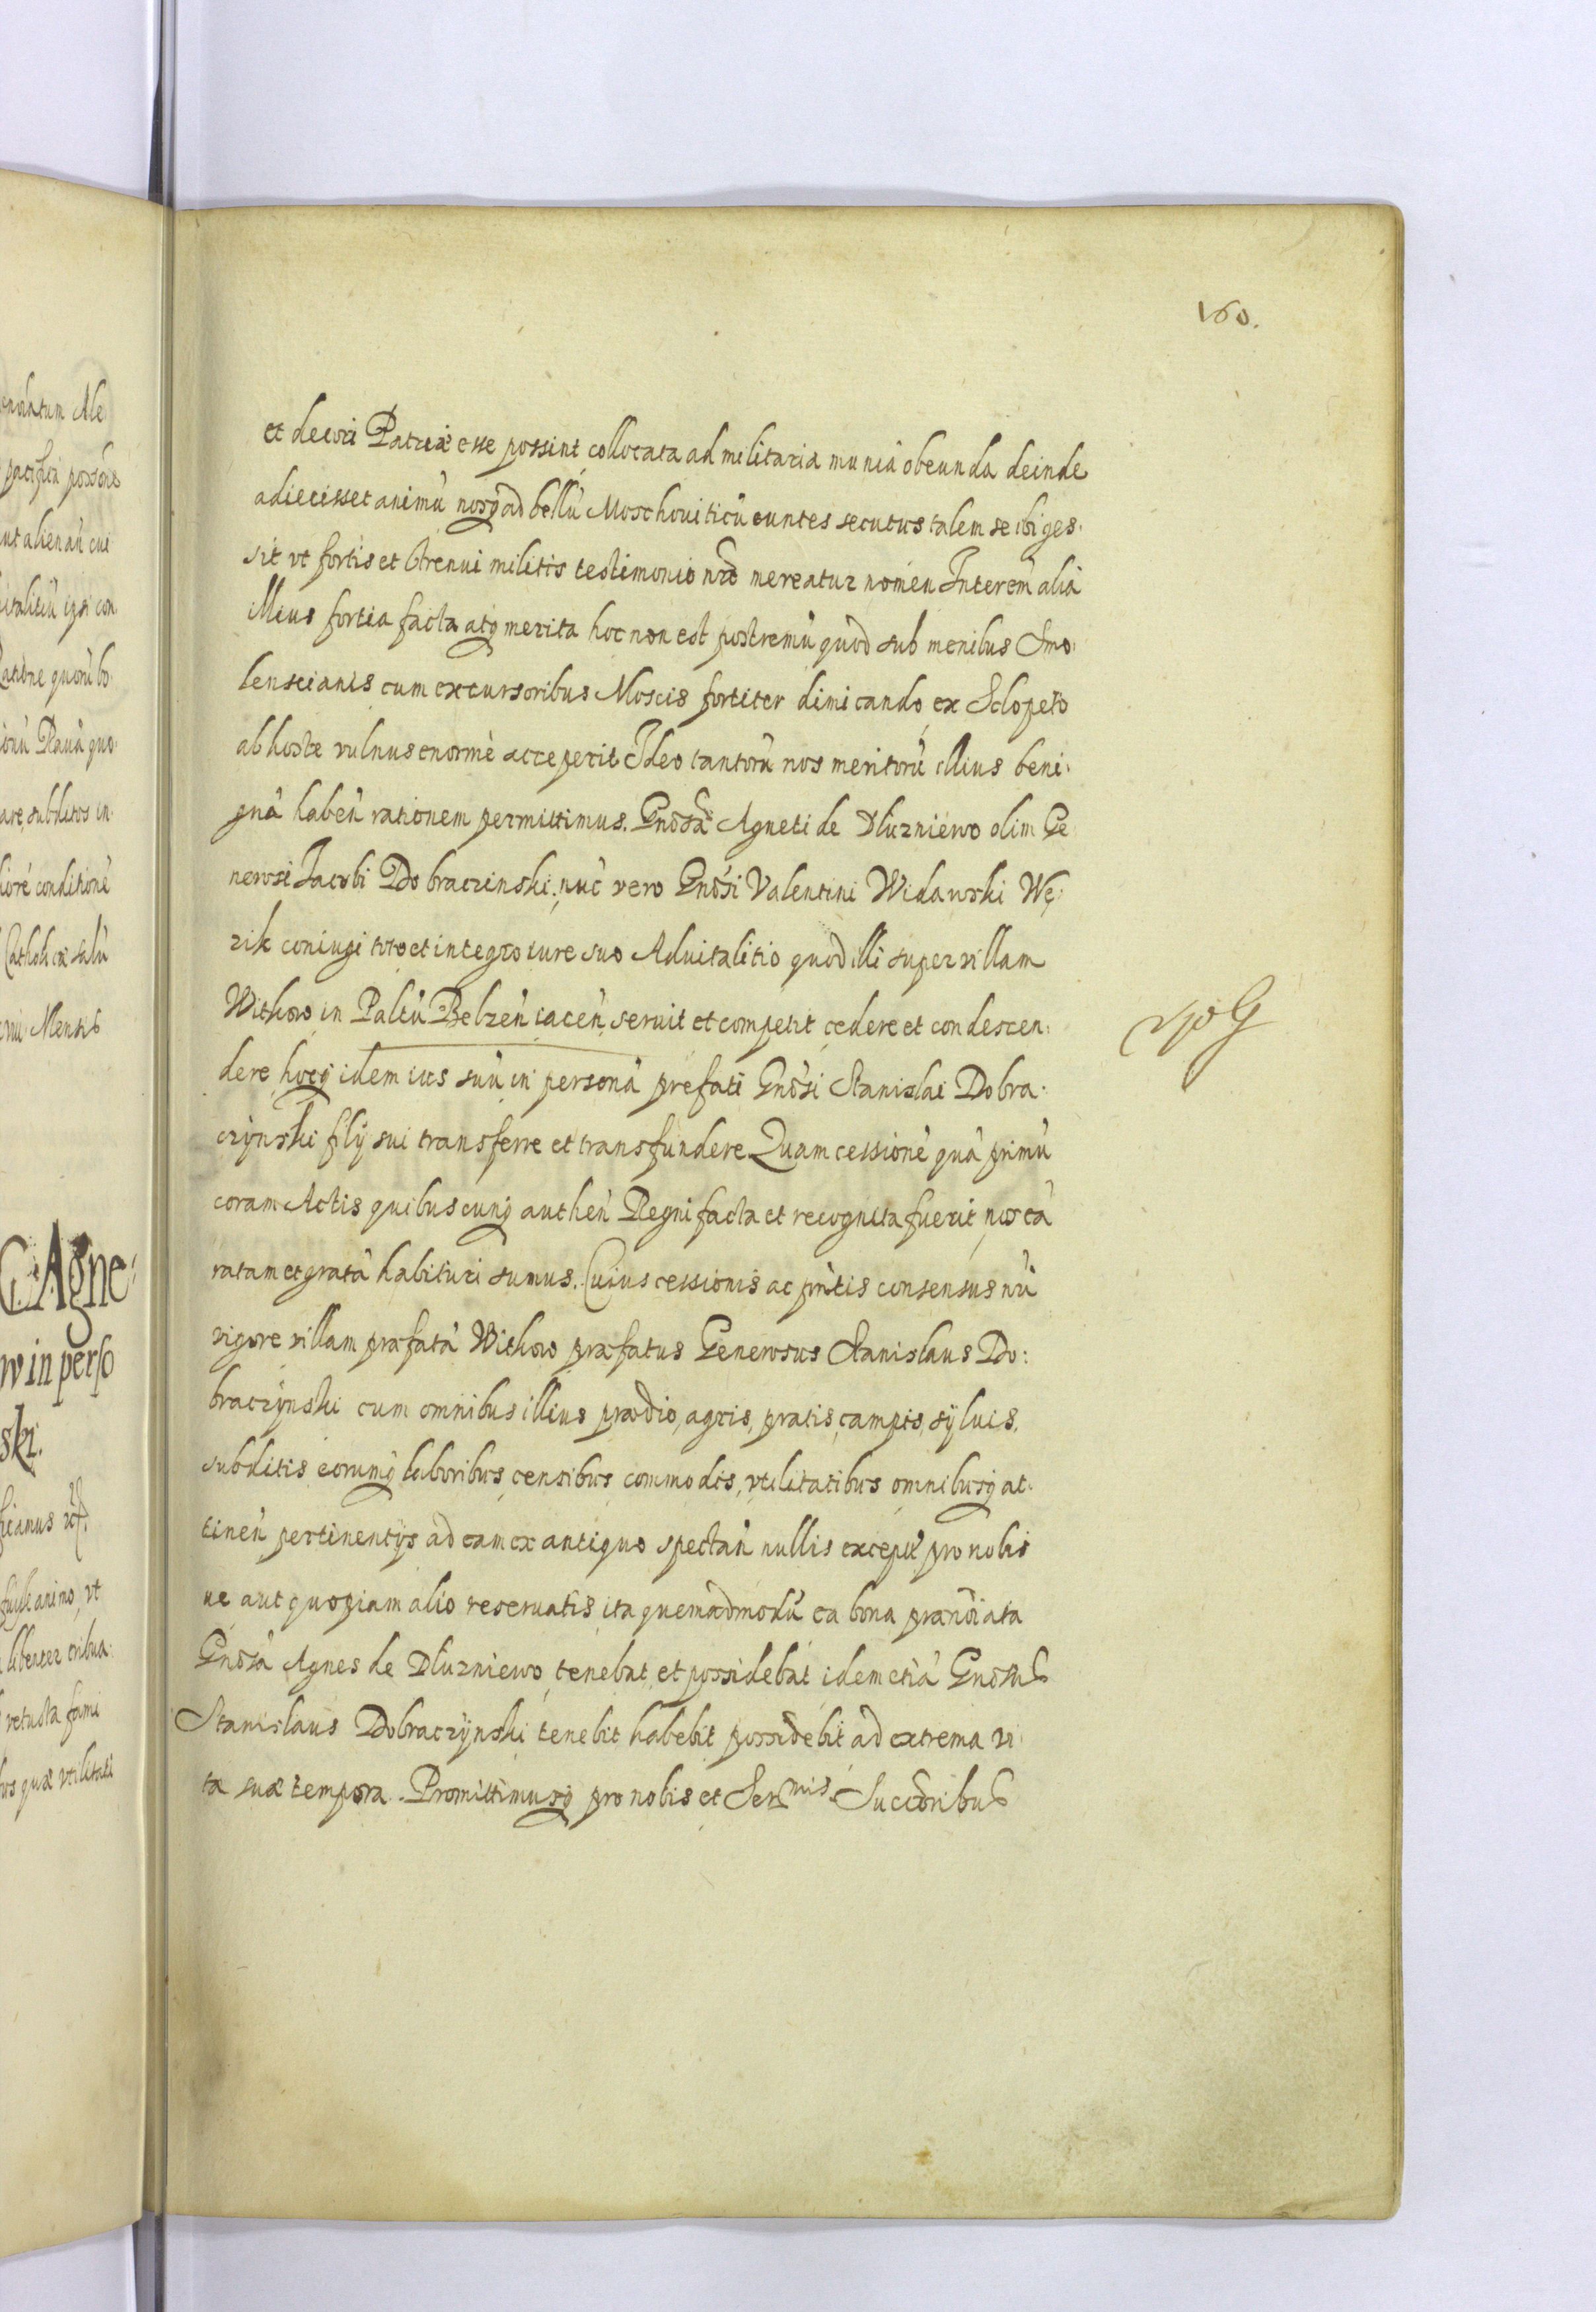 160.
et decori Patriæ esse possint collocata ad militaria munia obeunda deinde
adiecisset animũ nosq̃ ad bellũ Moschouiticũ euntes secutus talem se ibi ges.
sit vt fortis et strenui militis testimonio nr̃o mereatur nomen Interem̃ alia
illius fortia facta atq̃ merita hoc non est postremũ quod sub menibus Smo.
lenscianis cum excursoribus Moscis fortiter dimicando ex Sclopeto
ab hoste vulnus enormè acceperit Ideo tantorũ nos meritorũ illius beni.
gnã habeñ rationem permittimus. Gnõsæ Agneti de Dłuzniewo olim Ge
nerosi Jacobi Dobraczinski, nũc vero Gnõsi Valentini Widawski Wę.
zik coniugi toto et integro iure suo Aduitalitio quod illi super villam
Withow in Paltũ Belzeñ iaceñ seruit et competit cedere et condescen.
dere hocq̃ idem ius suũ in personã prefati Gnõsi Stanislai Dobra.
czÿnski filÿ sui transferre et transfundere Quam cessionẽ quã primũ
coram Actis quibuscunq̃ autheñ Regni facta et recognita fuerit, nos eã
ratam et gratã habituri sumus. Cuius cessionis ac pñtis consensus nr̃i
vigore villam præfatã Withow præfatus Generosus Stanislaus Do:
braczÿnski cum omnibus illius prædio, agris, pratis, campis, sÿluis,
subditis eorumq̃ laboribus, censibus commodis, vtilitatibus omnibusq̃ at.
tineñ pertinentÿs ad eam ex antiquo spectañ nullis exceptis pro nobis
ue aut quopiam alio reseruatis ita quemadmodũ ea bona prænoĩata
Gnõsa Agnes de Dłuzniewo tenebat, et possidebat idem etiã Gnõsus
Stanislaus Dobraczÿnski tenebit habebit possidebit ad extrema vi
tæ suæ tempora. Promittimusq̃ pro nobis et Ser mis Succõribus